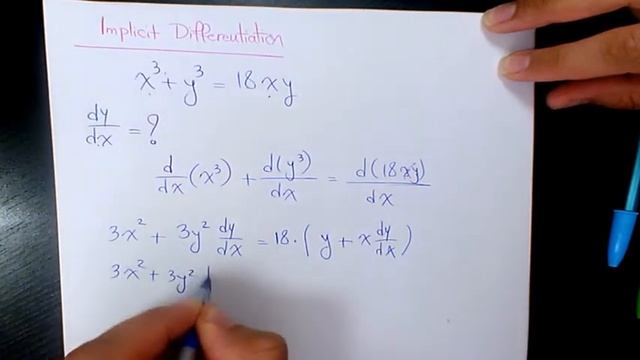 Implicit Differentiation
x³ + y³ = 18xy
dy/dx = ?
d/dx (x³) + d(y³)/dx = d(18xy)/dx
3x² + 3y² dy/dx = 18·(y + x dy/dx)
3x² + 3y²